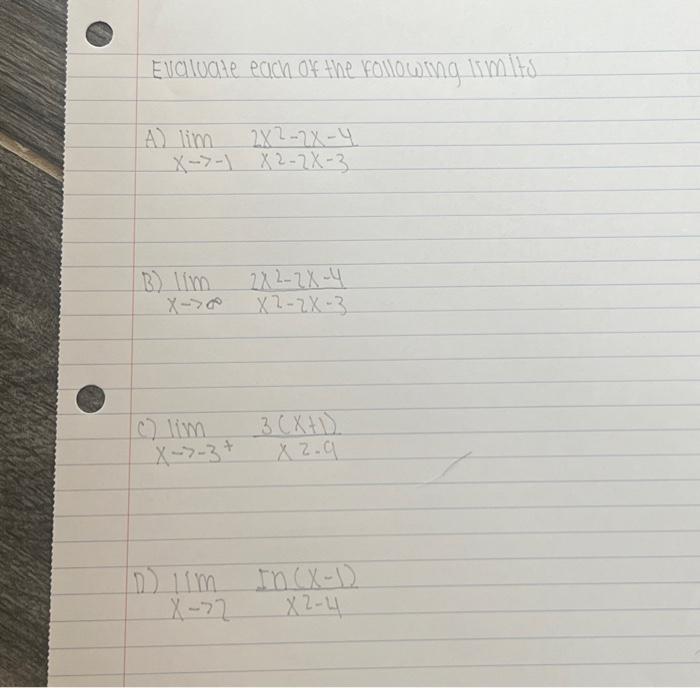 Evaluate each of the following limits
A) lim 2x²-2x-4
x->-1 x2-2x-3
B) lim 2x2-2x-4
x->∞ x2-2x-3
C) lim 3(x+1)
x->-3+ x2-9
D) lim In(x-1)
x->2 x2-4